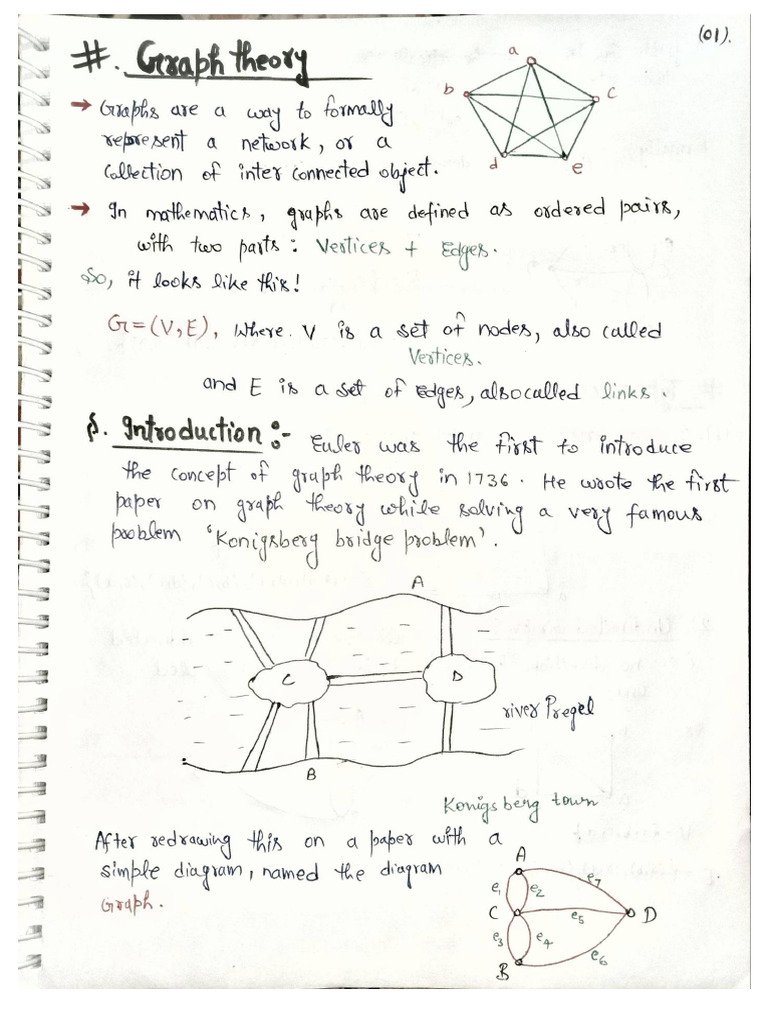 (01).
#. Graph theory
→ Graphs are a way to formally
represent a network, or a
Collection of inter connected object.
a
b
c
d
e
→ In mathematics, graphs are defined as ordered pairs,
with two parts: Vertices + Edges.
So, it looks like this!
G=(V,E), Where. V is a set of nodes, also called
Vertices.
and E is a set of Edges, also called links.
§. Introduction :- Euler was the first to introduce
the concept of graph theory in 1736. He wrote the first
paper on graph theory while solving a very famous
problem 'Konigsberg bridge problem'.
A
C
D
river Pregel
B
Konigsberg town
After redrawing this on a paper with a
simple diagram, named the diagram
Graph.
A
e1
e2
e7
C
e5
D
e3
e4
e6
B